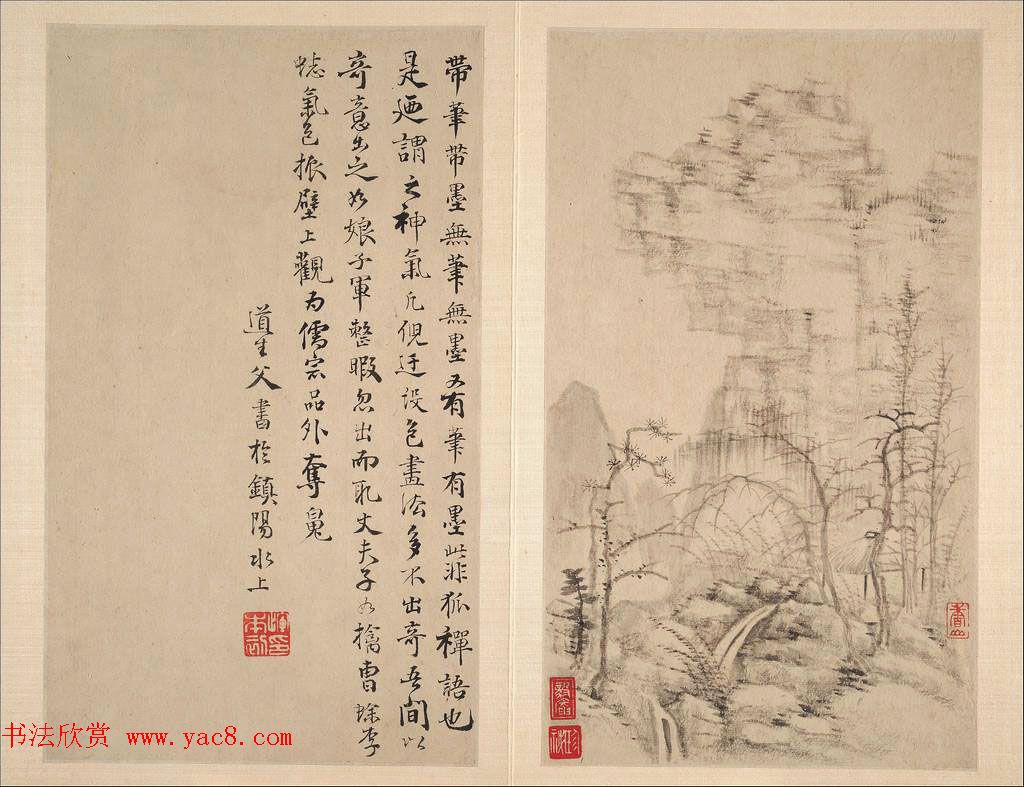 帶筆帶墨無筆無墨又有筆有墨此非狐禪語也
是廼謂之神氣凡倪迂設色畫法多不出奇吾間以
奇意出之如娘子軍整暇忽出而耴丈夫子如擒曹蜍李
蜍氣色振壁上觀为儒宗品外奪
道生父書於鎮陽水上
书法欣赏 www.yac8.com